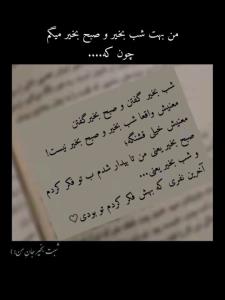 من بهت شب بخیر و صبح بخیر میگم
چون که....
شب بخیر گفتن و صبح بخیر گفتن
معنیش واقعا شب بخیر و صبح بخیر نیست!
معنیش خیلی قشنگه؛
صبح بخیر یعنی من تا بیدار شدم ب تو فکر کردم
و شب بخیر یعنی...
آخرین نفری که بهش فکر کردم تو بودی♡
شبت بخیر جان من:)